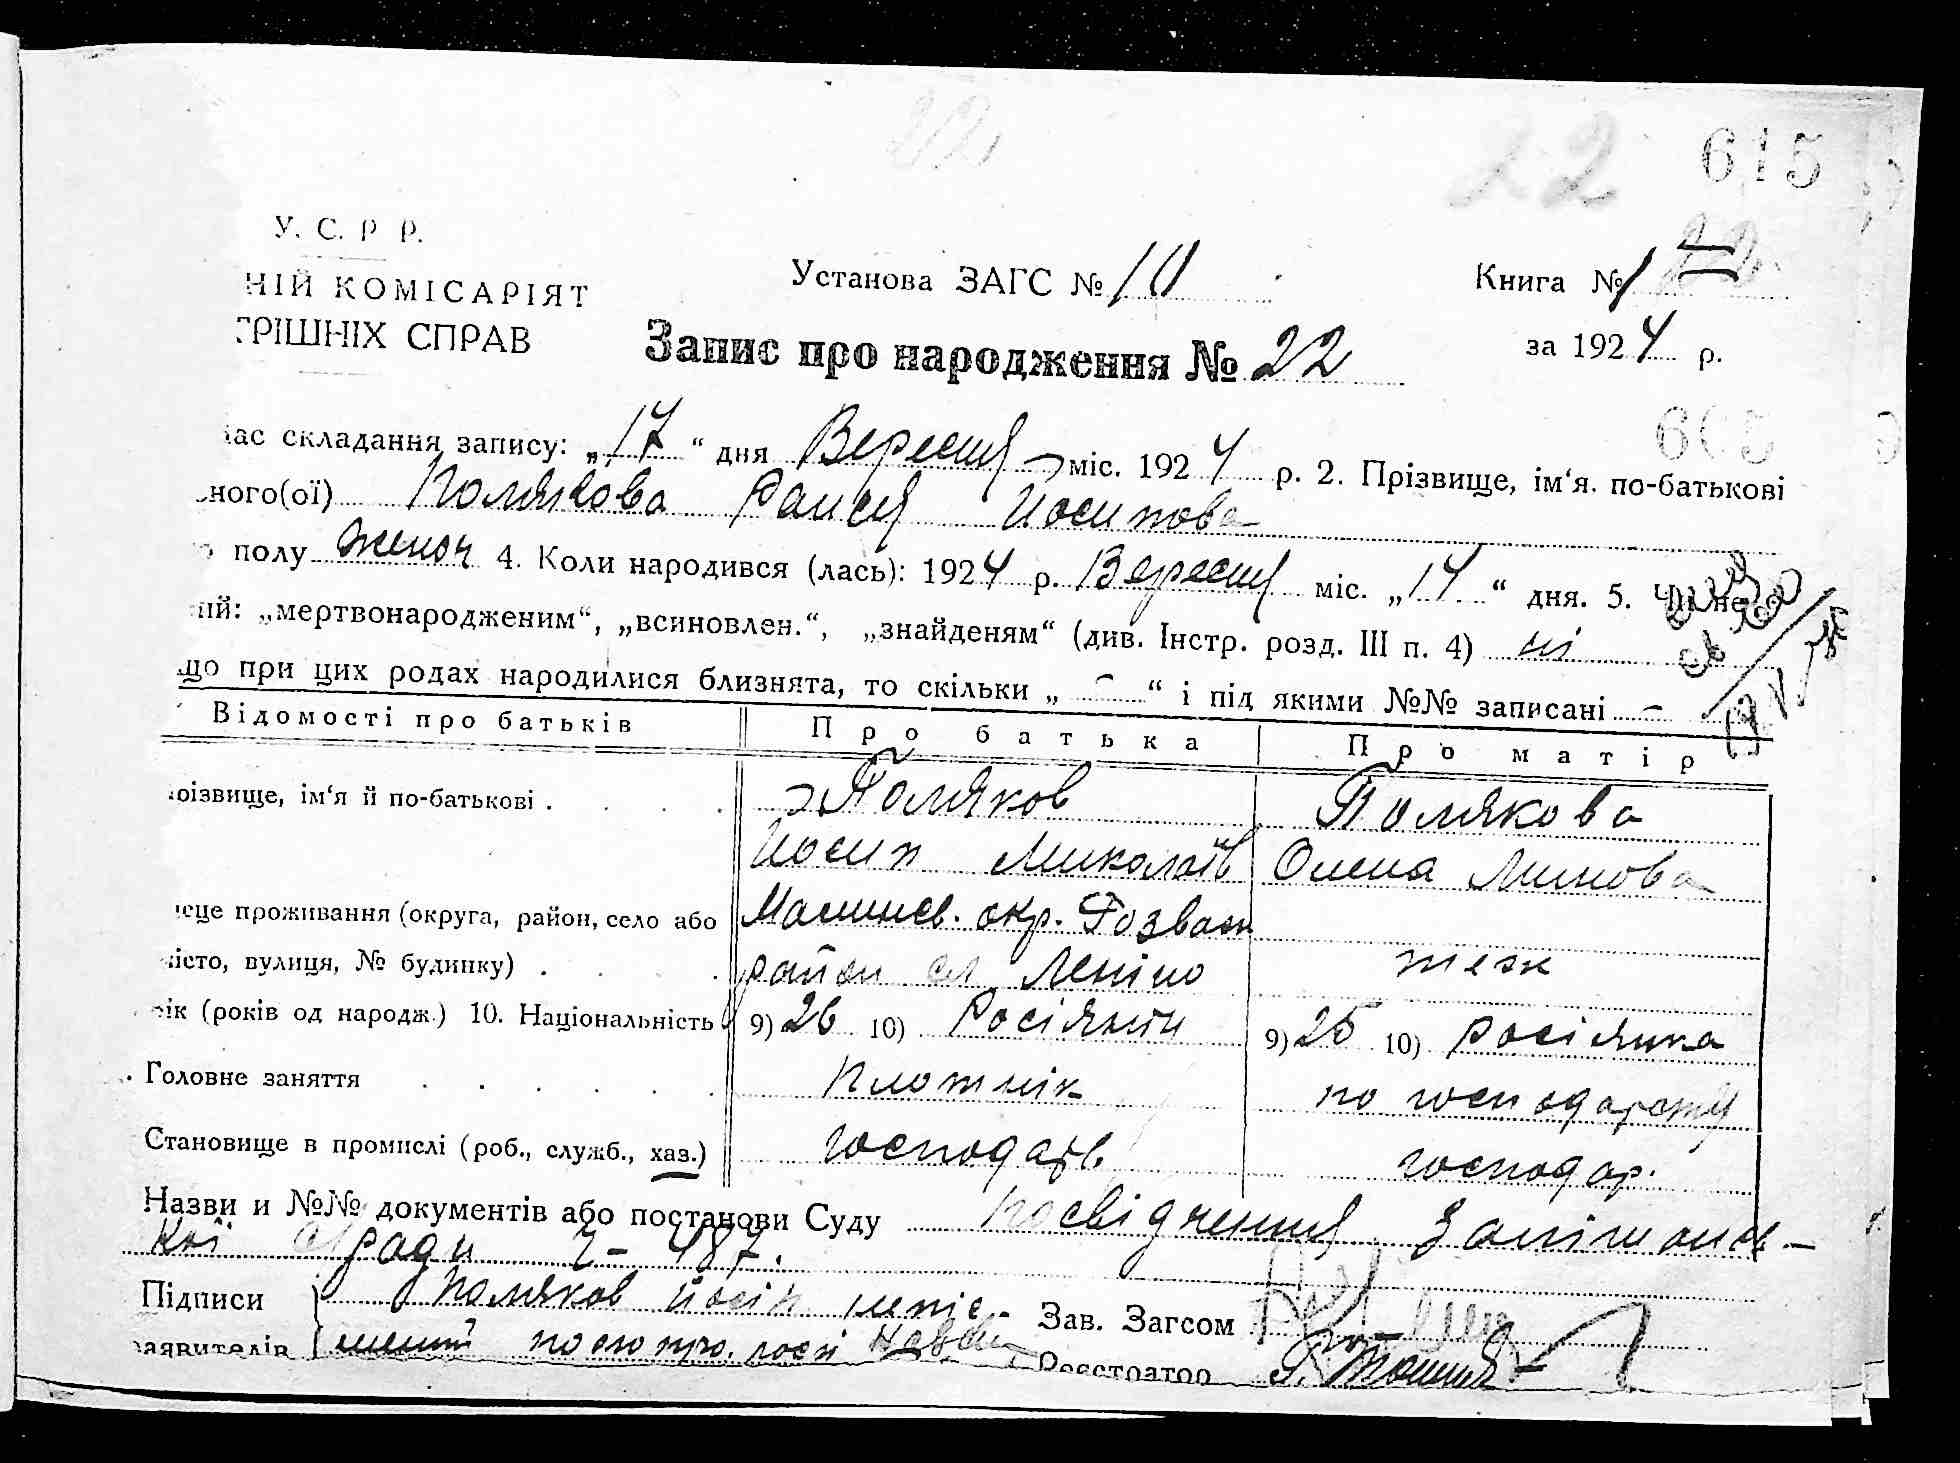 22
22 615
У. С. Р Р.
НІЙ КОМІСАРІЯТ Установа ЗАГС № 10 Книга № 1
РІШНІХ СПРАВ Запис про народження № 22 за 1924 р.
605
час складання запису: „17“ дня Вересня міс. 1924 р. 2. Прізвище, ім‘я. по-батькові
ного(ої) Полякова Раися Йосипова
полу женоч 4. Коли народився (лась): 1924 р. Вересня міс. „14“ дня. 5. Чи не
ній: „мертвонародженим“, „всиновлен.“, „знайденям“ (див. Інстр. розд. III п. 4) ні
що при цих родах народилися близнята, то скільки „ – “ і під якими №№ записані –
Відомості про батьків Про батька Про матір
різвище, ім‘я й по-батькові . Поляков Полякова
Йосип Миколаїв Олена Минова
місце проживання (округа, район, село або Малинсв. окр. Розваж
місто, вулиця, № будинку) . район сл Леніно теж
рік (років од народж.) 10. Національність 9) 26 10) Росіянин 9) 25 10) росіянка
. Головне заняття плотнік по господарству
Становище в промислі (роб., служб., хаз.) господарь господар.
Назви и №№ документів або постанови Суду посвідчення
кої с/ради 487.
Підписи Поляков Йосіп непіс- Зав. Загсом
заявителів менний Реєстратор